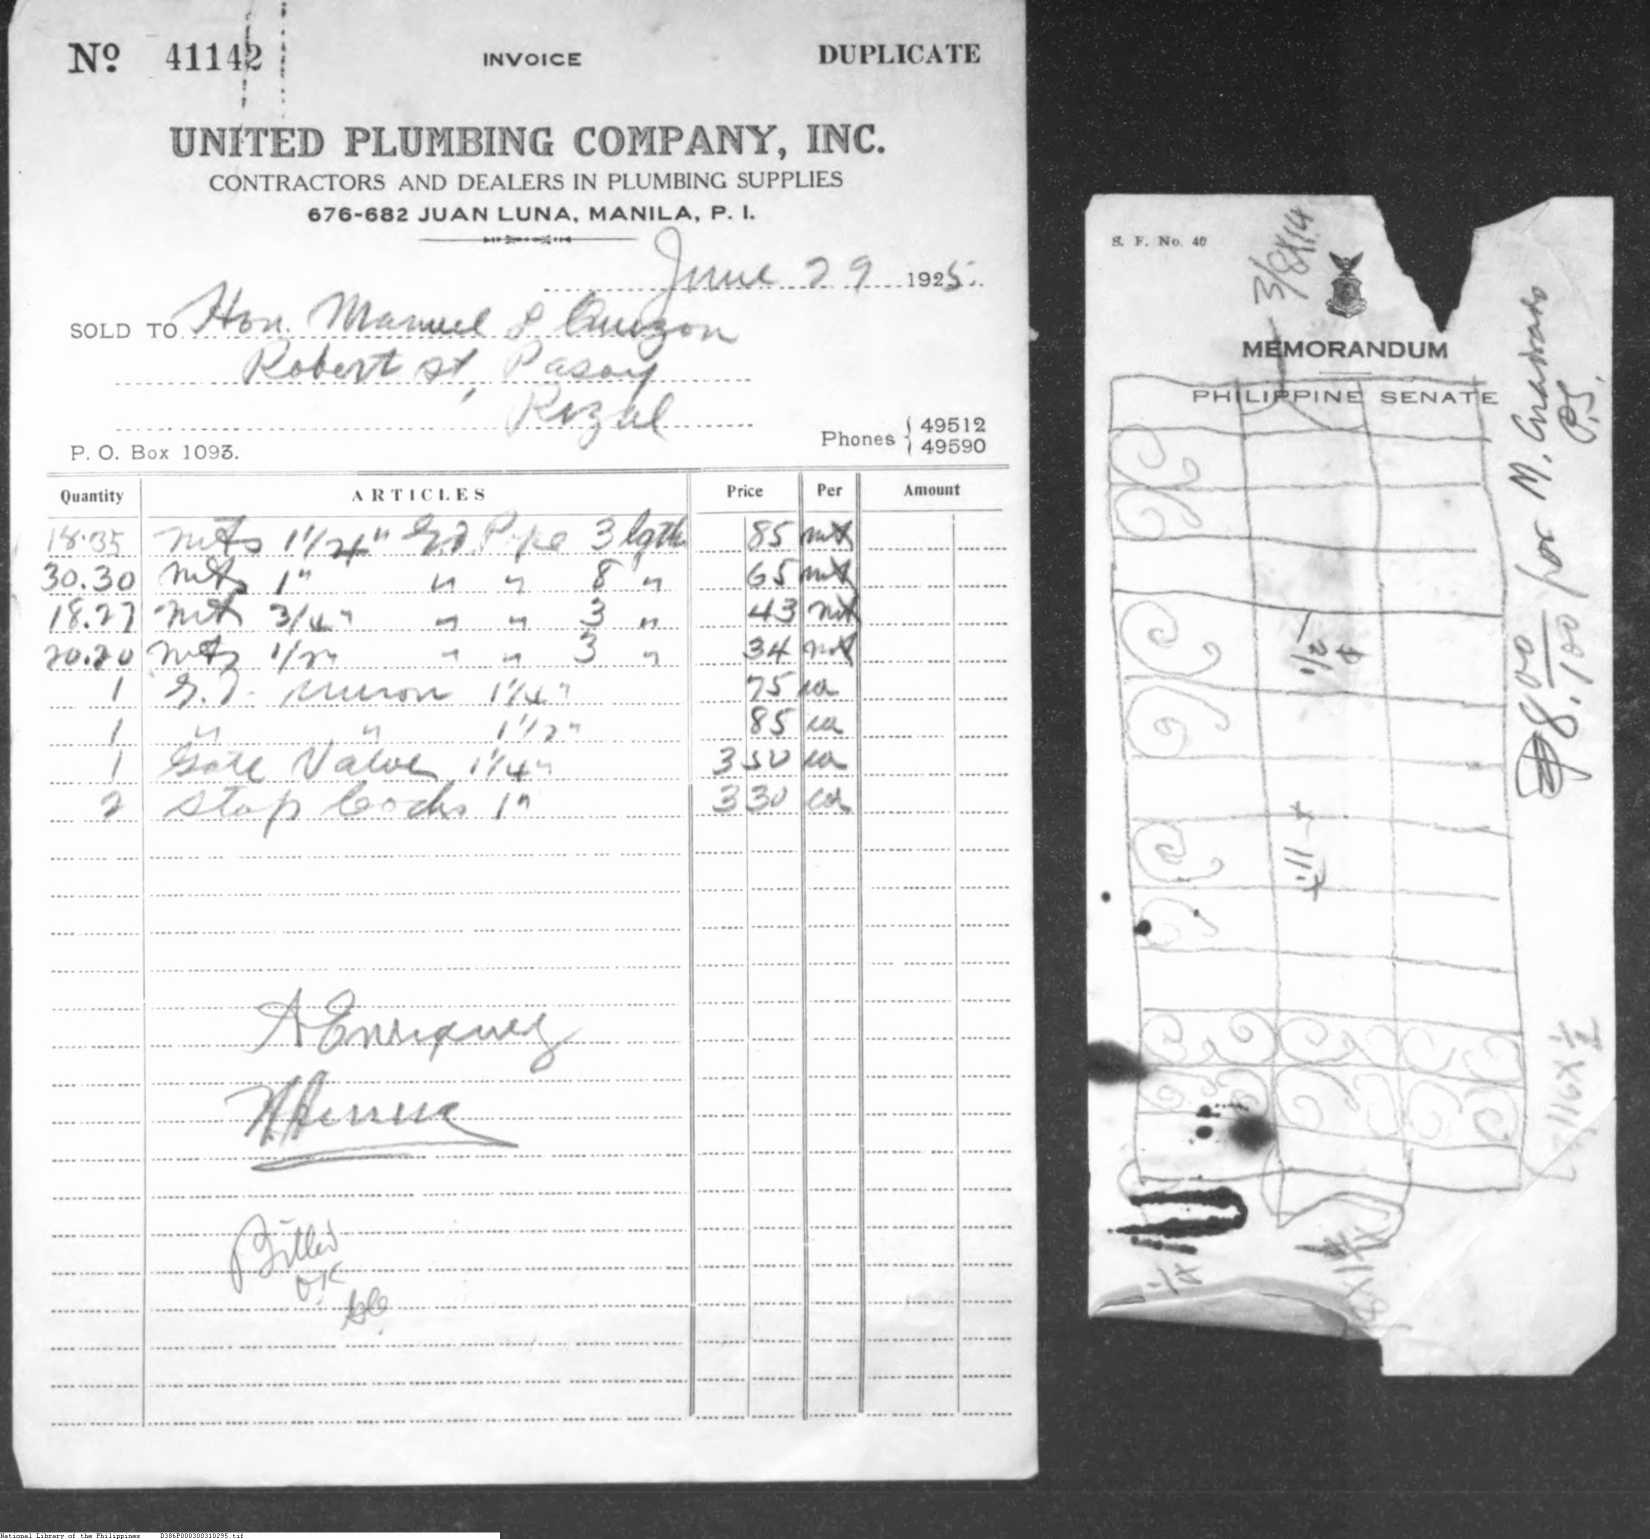 No 41142 INVOICE DUPLICATE
UNITED PLUMBING COMPANY, INC.
CONTRACTORS AND DEALERS IN PLUMBING SUPPLIES
676-682 JUAN LUNA, MANILA, P. I.
June 29 1925.
SOLD TO Hon. Manuel L Quezon
Robert st, Pasay
Rizal
P. O. Box 1093.
Phones { 49512
49590
Quantity ARTICLES Price Per Amount
18.35 mts 1 1/4" G.I. Pipe 3 lgth 85 mt
30.30 mts 1" " " 8 " 65 mt
18.27 mts 3/4" " " 3 " 43 mt
20.20 mts 1/2" " " 3 " 34 mt
1 G.I. union 1 1/4" 75 ea
1 " " 1 1/2" 85 ea
1 Gate Valve 1 1/4" 3 50 ea
2 Stop Cocks 1" 3 30 ea
A Enriquez
Billed
OK
S. F. No. 40
3/8x14
MEMORANDUM
PHILIPPINE SENATE
1/2
11
₱8.00/100 for M. Cuadrado
P.S.
1/4
National Library of the Philippines D386P000300310295.tif